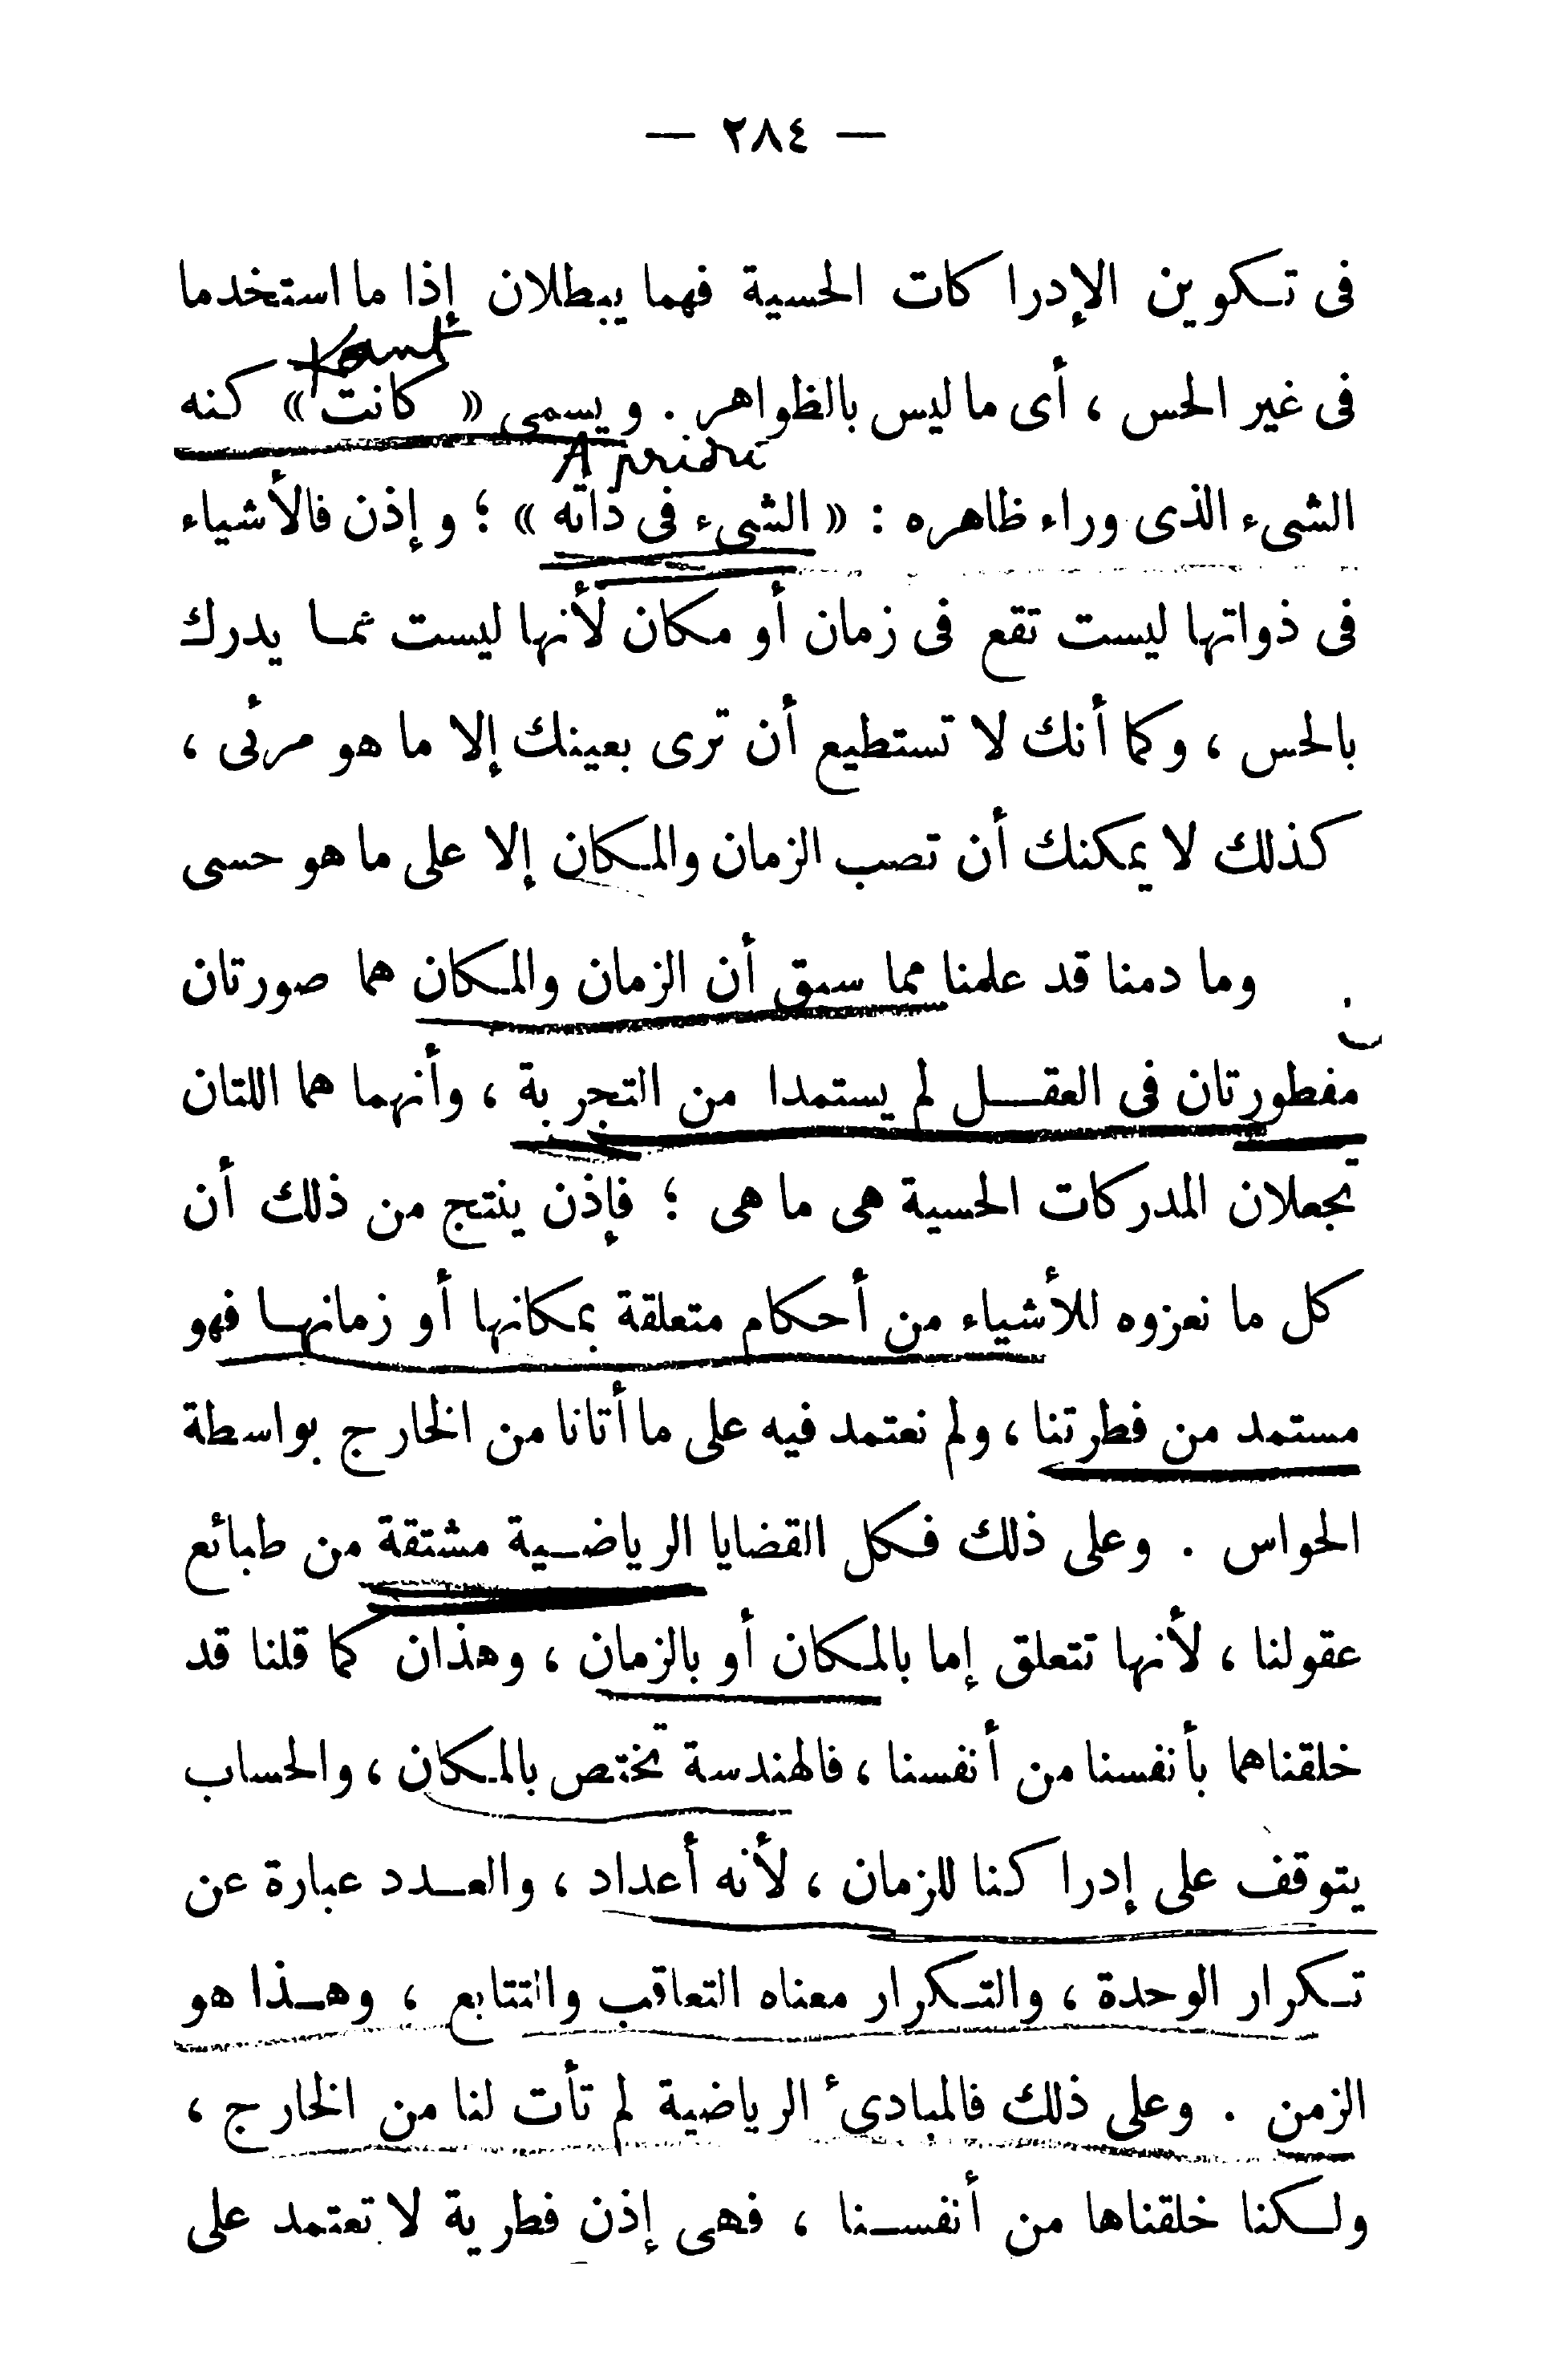 — ٢٨٤ —
فى تكوين الإدراكات الحسية فهما يبطلان إذا ما استخدما
Kant
فى غير الحس ، أى ما ليس بالظواهر . ويسمى « كانت » كنه
A priori
الشىء الذى وراء ظاهره : « الشىء فى ذاته » ؛ وإذن فالأشياء
فى ذواتها ليست تقع فى زمان أو مكان لأنها ليست مما يدرك
بالحس ، وكما أنك لا تستطيع أن ترى بعينك إلا ما هو مرئى ،
كذلك لا يمكنك أن تصب الزمان والمكان إلا على ما هو حسى
وما دمنا قد علمنا مما سبق أن الزمان والمكان هما صورتان
مفطورتان فى العقل لم يستمدا من التجربة ، وأنهما هما اللتان
تجعلان المدركات الحسية هى ما هى ؛ فإذن ينتج من ذلك أن
كل ما نعزوه للأشياء من أحكام متعلقة بمكانها أو زمانها فهو
مستمد من فطرتنا ، ولم نعتمد فيه على ما أتانا من الخارج بواسطة
الحواس . وعلى ذلك فكل القضايا الرياضية مشتقة من طبائع
عقولنا ، لأنها تتعلق إما بالمكان أو بالزمان ، وهذان كما قلنا قد
خلقناهما بأنفسنا من أنفسنا ، فالهندسة تختص بالمكان ، والحساب
يتوقف على إدراكنا للزمان ، لأنه أعداد ، والعدد عبارة عن
تكرار الوحدة ، والتكرار معناه التعاقب والتتابع ، وهذا هو
الزمن . وعلى ذلك فالمبادىء الرياضية لم تأت لنا من الخارج ،
ولكنا خلقناها من أنفسنا ، فهى إذن فطرية لا تعتمد على